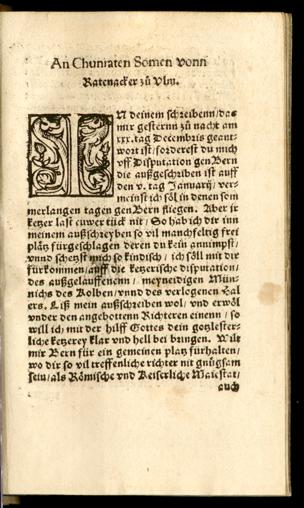 An Chunraten Somen vonn
Ratenacker zů Vlm.
IN deinem schreibenn / das
mir gesternn zů nacht am
xxx. tag Decembris geant-
wort ist / forderest du mich
vff Disputation gen Bern
die außgeschriben ist auff
den v. tag Januarij / ver-
meinst ich söl in denen som
merlangen tagen gen Bern fliegen. Aber ir
ketzer last euwer tück nit / So hab ich dir inn
meinem außschreyben so vil manchfeltig frei
plätz fürgeschlagen deren du kein annimpst /
vnnd schetzst mich so kindisch / ich söll mit dir
fürkommen / auff die ketzerische disputation /
des außgelauffenenn / meyneidigen Mün-
nichs des Kolben / vnnd des verlegenen Hal
ers. Liß mein außschreiben wol / vnd erwöl
vnder den angebottenn Richteren einenn / so
will ich / mit der hilff Gottes dein gotzlester-
liche ketzerey klar vnd hell bei bringen. Wilt
mir Bern für ein gemeinen platz fürhalten /
wo dir so vil treffenliche richter nit gnůgsam
sein / als Römische vnd Keiserliche Maiestat /
auch